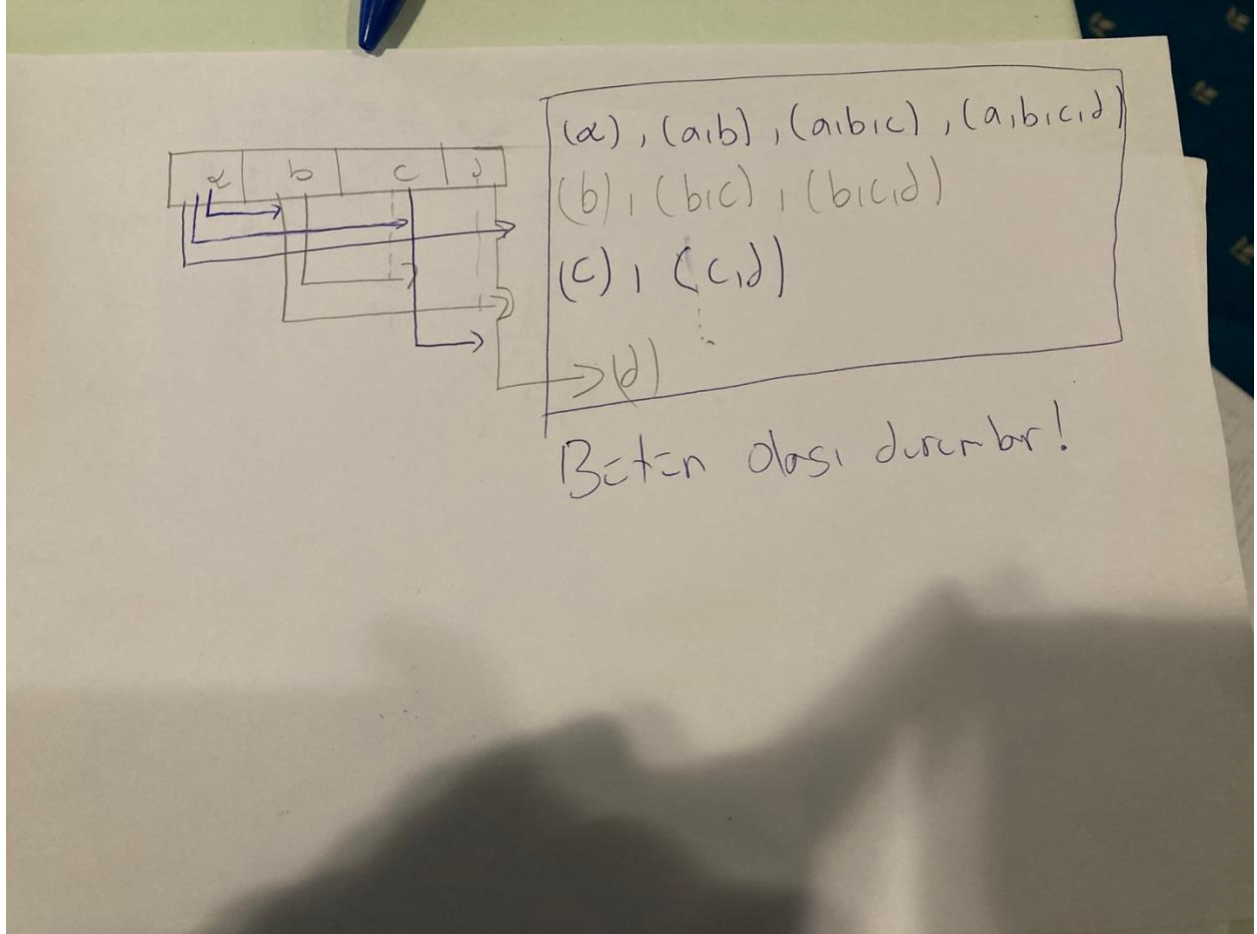 a b c d
(a), (a,b), (a,b,c), (a,b,c,d)
(b), (b,c), (b,c,d)
(c), (c,d)
(d)
Bütün olası durumlar!